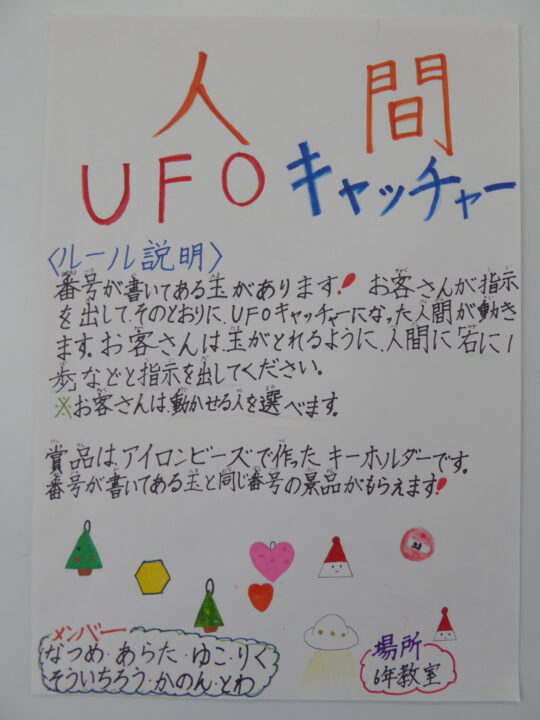 人間
UFOキャッチャー
〈ルール説明〉
番号が書いてある玉があります! お客さんが指示
を出して、そのとおりに、UFOキャッチャーになった人間が動き
ます。お客さんは、玉がとれるように、人間に右に1
歩などと指示を出してください。
※お客さんは、動かせる人を選べます。
賞品は、アイロンビーズで作ったキーホルダーです。
番号が書いてある玉と同じ番号の景品がもらえます!
メンバー
なつめ・あらた・ゆこ・りく
そういちろう・かのん・とわ
場所
6年教室